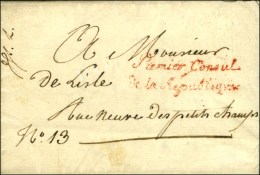 A Monsieur
Premier Consul
De Lisle
de la République
Rue neuve des petits champs
N° 13